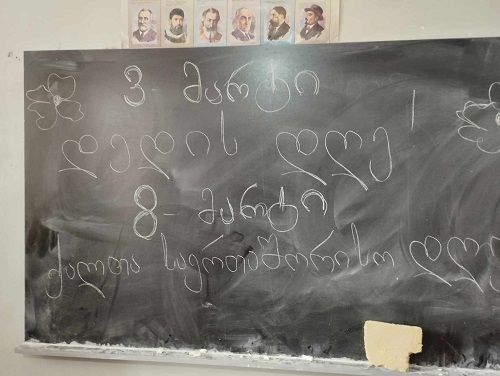 3 - მარტი
დედის დღე
8 - მარტი
ქალთა საერთაშორისო დღე